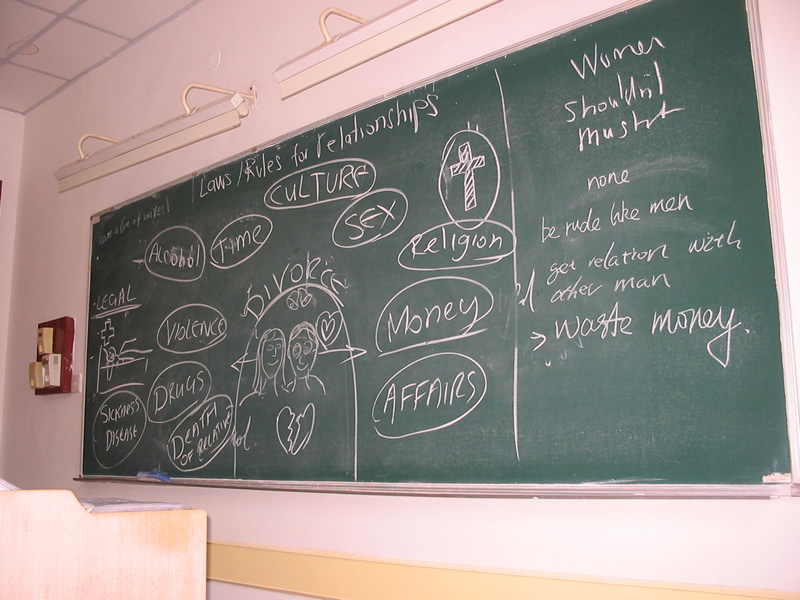 Laws/Rules for relationships
CULTURE
SEX
Religion
Alcohol
Time
LEGAL
VIOLENCE
Divorce
Money
DRUGS
AFFAIRS
SICKNESS
DISEASE
DEATH
OF RELATIVE
Women
shouldn't
none
be rude like men
get relation with
other man
> waste money.